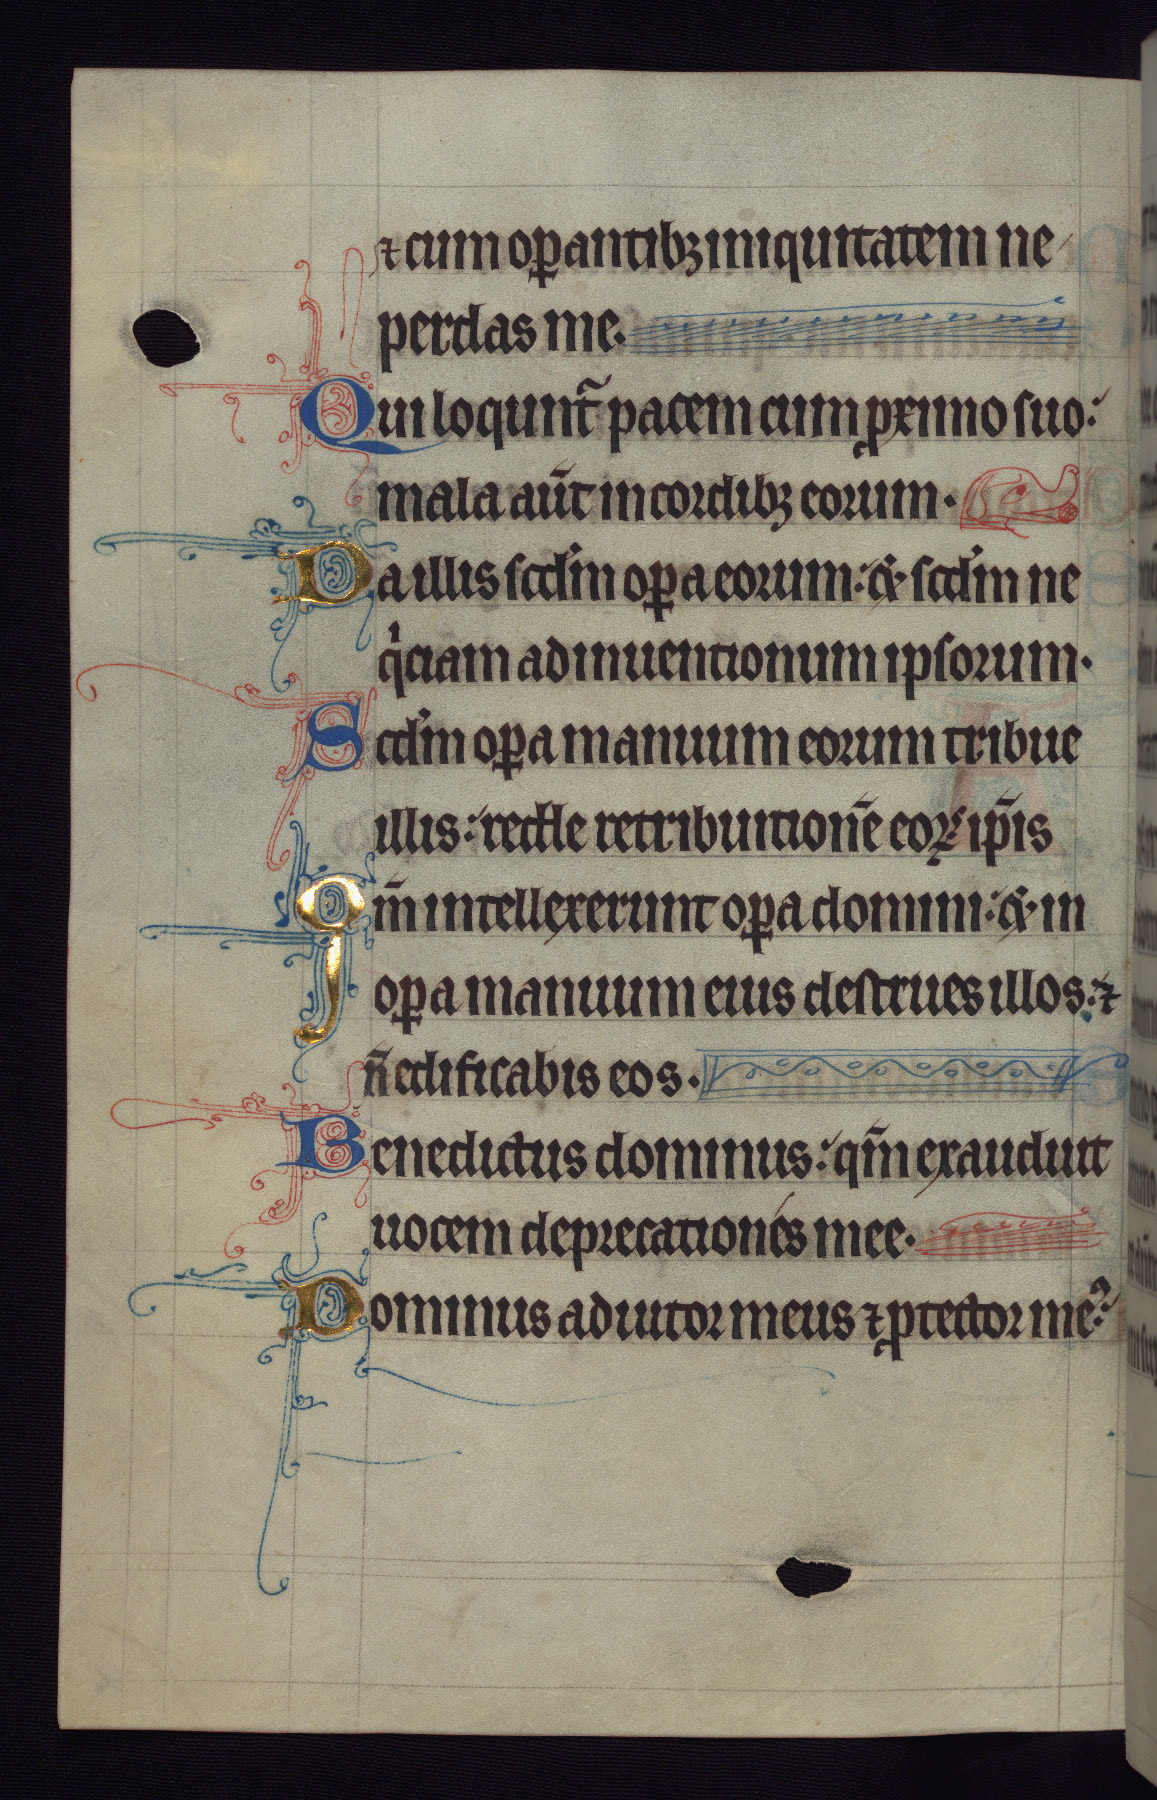 ⁊ cum oꝑantibꝫ iniquitatem ne
perdas me.
Qui loqunt᷑ pacem cum ꝓximo suo:
mala aūt in cordibꝫ eorum.
Da illis scd'm oꝑa eorum: & scd'm ne
qͥciam adinuentionum ipsorum.
Scd'm oꝑa manuum eorum tribue
illis: redde retributionē eoꝝ ip̄is
Qm̄ intellexerunt oꝑa domini: & in
oꝑa manuum eius destrues illos: ⁊
n̄ edificabis eos.
Benedictus dominus: qm̄ exaudiuit
uocem deprecationis mee.
Dominus adiutor meus ⁊ ꝓtector me᷒: